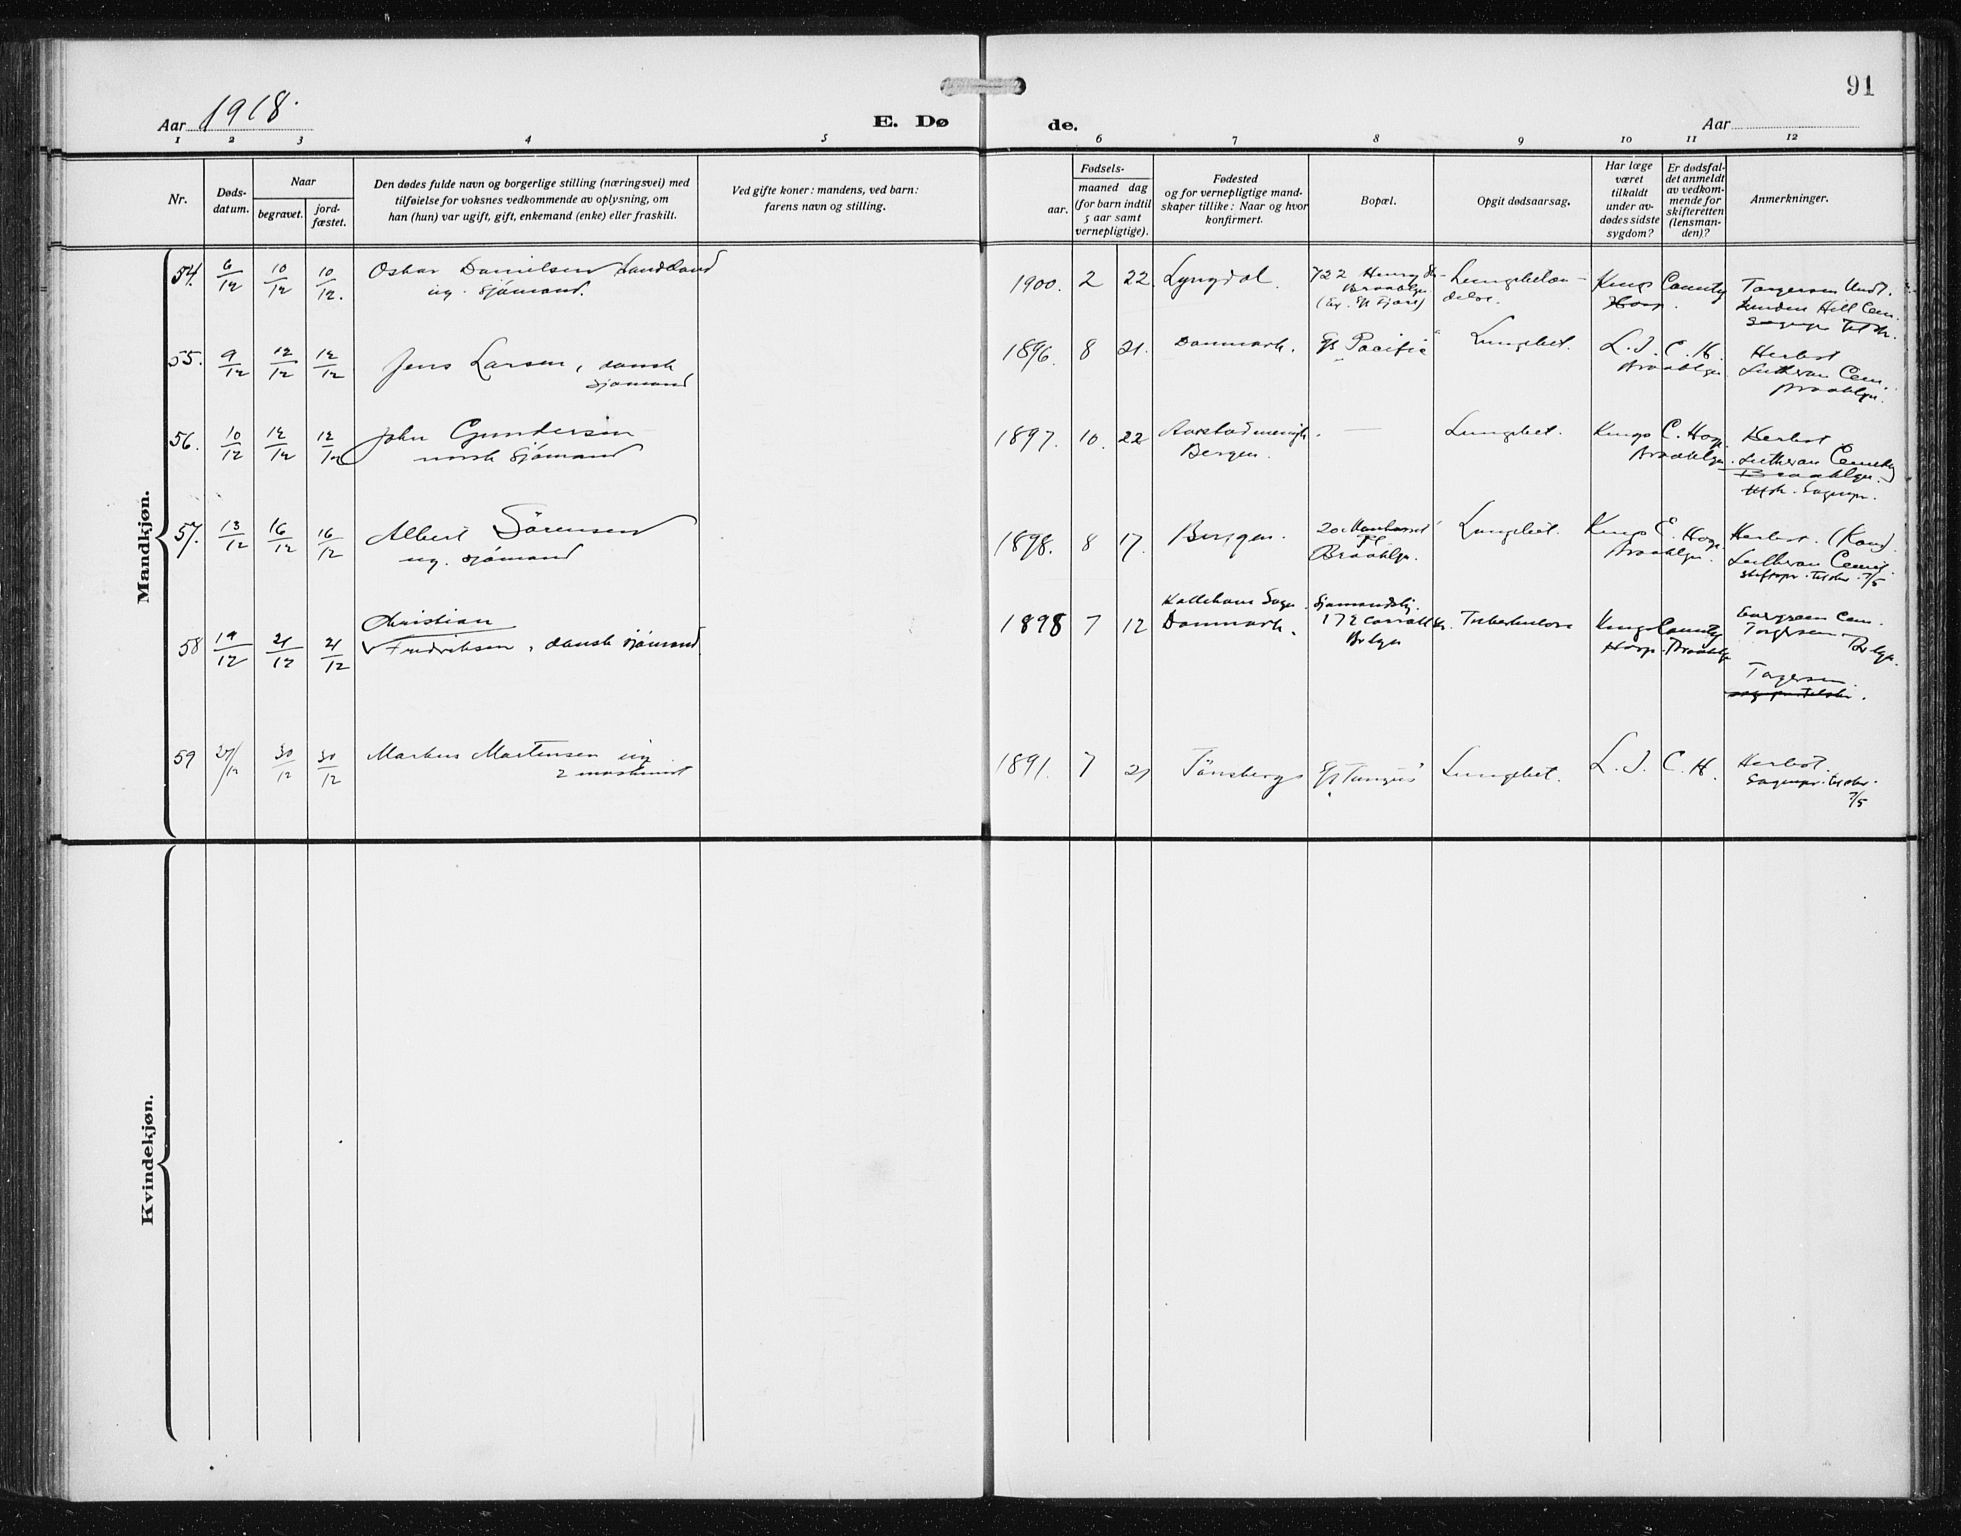 91
Aar 1918.
E. Dø
de.
Aar
1 2 3 4 5 6 7 8 9 10 11 12
Nr.
Døds-
datum.
Naar
begravet.
jord-
fæstet.
Den dødes fulde navn og borgerlige stilling (næringsvei) med
tilføielse for voksnes vedkommende av oplysning, om
han (hun) var ugift, gift, enkemand (enke) eller fraskilt.
Ved gifte koner: mandens, ved barn:
farens navn og stilling.
Fødsels-
aar.
maaned dag
(for barn indtil
5 aar samt
vernepligtige).
Fødested
og for vernepligtige mand-
skaper tillike: Naar og hvor
konfirmert.
Bopæl.
Opgit dødsaarsag.
Har læge
været
tilkaldt
under av-
dødes sidste
sygdom?
Er dødsfal-
det anmeldt
av vedkom-
mende for
skifteretten
(lensman-
den)?
Anmerkninger.
Mandkjøn.
54. 6/12 10/12 10/12. Oskar Danielsen
ug. sjömand.
1900. 2 22. Lyngdal.
722 Henry St.
Brooklyn
Lungebetæn-
delse.
Kings County
Hosp.
Torgersen Undt.
Linden Hill Cem.
55. 9/12 12/12 12/12 Jens Larsen, dansk
sjömand
1896. 8 21. Danmark. S/S "Pacific" Lungebet. L. I. C. H.
Brooklyn
Herbst
Lutheran Cem.
Brooklyn.
56. 10/12 12/12 12/12 John Gundersen
norsk sjömand
1897. 10. 22 Aarstad menigh.
Bergen.
— Lungebet. Kings C. Hosp.
Brooklyn
Herbst
Lutheran Cemetery
Brooklyn.
57. 13/12 16/12 16/12 Albert Sörensen
ug. sjömand
1898. 8 17. Bergen.
20 Manhasset
Pl.
Brooklyn.
Lungebet. Kings C. Hosp.
Brooklyn.
Herbst.
Lutheran Cemet.
7/5
58 19/12 21/12 21/12 Christian
Fredriksen, dansk sjömand.
1898 7 12 Kallehave Sogn.
Danmark.
Sjömandshj.
172 Carroll St.
Bklyn
Tuberkulose Kings County
Hosp. Brooklyn
Evergreen Cem.
Torgersen
Bklyn.
Torgersen.
59 27/12 30/12 30/12 Markus Martensen ug
2 maskinist
1891. 7 21 Tönsberg S/S "Tungus" Lungebet. L. I. C. H. Herbst.
7/5
Kvindekjøn.